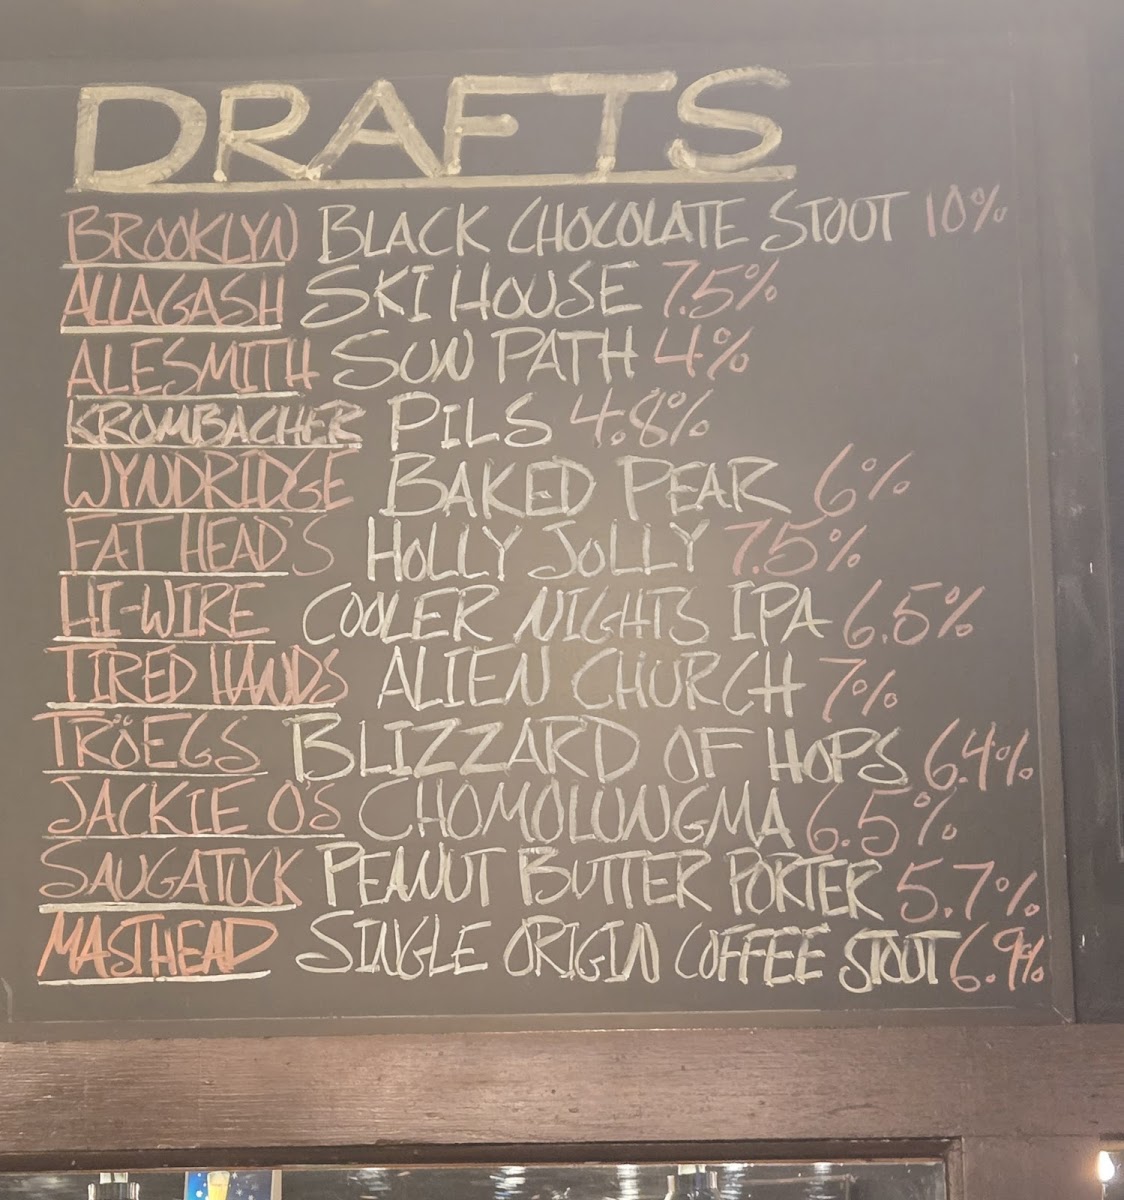 DRAFTS
BROOKLYN BLACK CHOCOLATE STOUT 10%
ALLAGASH SKI HOUSE 7.5%
ALESMITH SUN PATH 4%
KROMBACHER PILS 4.8%
WYNDRIDGE BAKED PEAR 6%
FAT HEAD'S HOLLY JOLLY 7.5%
HI-WIRE COOLER NIGHTS IPA 6.5%
TIRED HANDS ALIEN CHURCH 7%
TRÖEGS BLIZZARD OF HOPS 6.4%
JACKIE O'S CHOMOLUNGMA 6.5%
SAUGATUCK PEANUT BUTTER PORTER 5.7%
MASTHEAD SINGLE ORIGIN COFFEE STOUT 6.9%